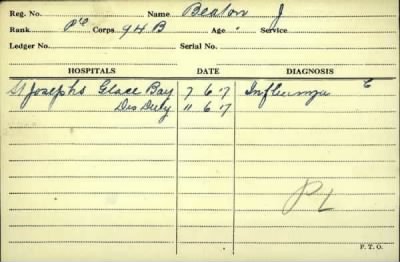 Reg. No. Name Beaton J
Rank Pte Corps 94 B Age Service
Ledger No. Serial No.
HOSPITALS DATE DIAGNOSIS
St Josephs Glace Bay 7 6 17 Influenza
Dis Duty 11 6 17
P. T. O.